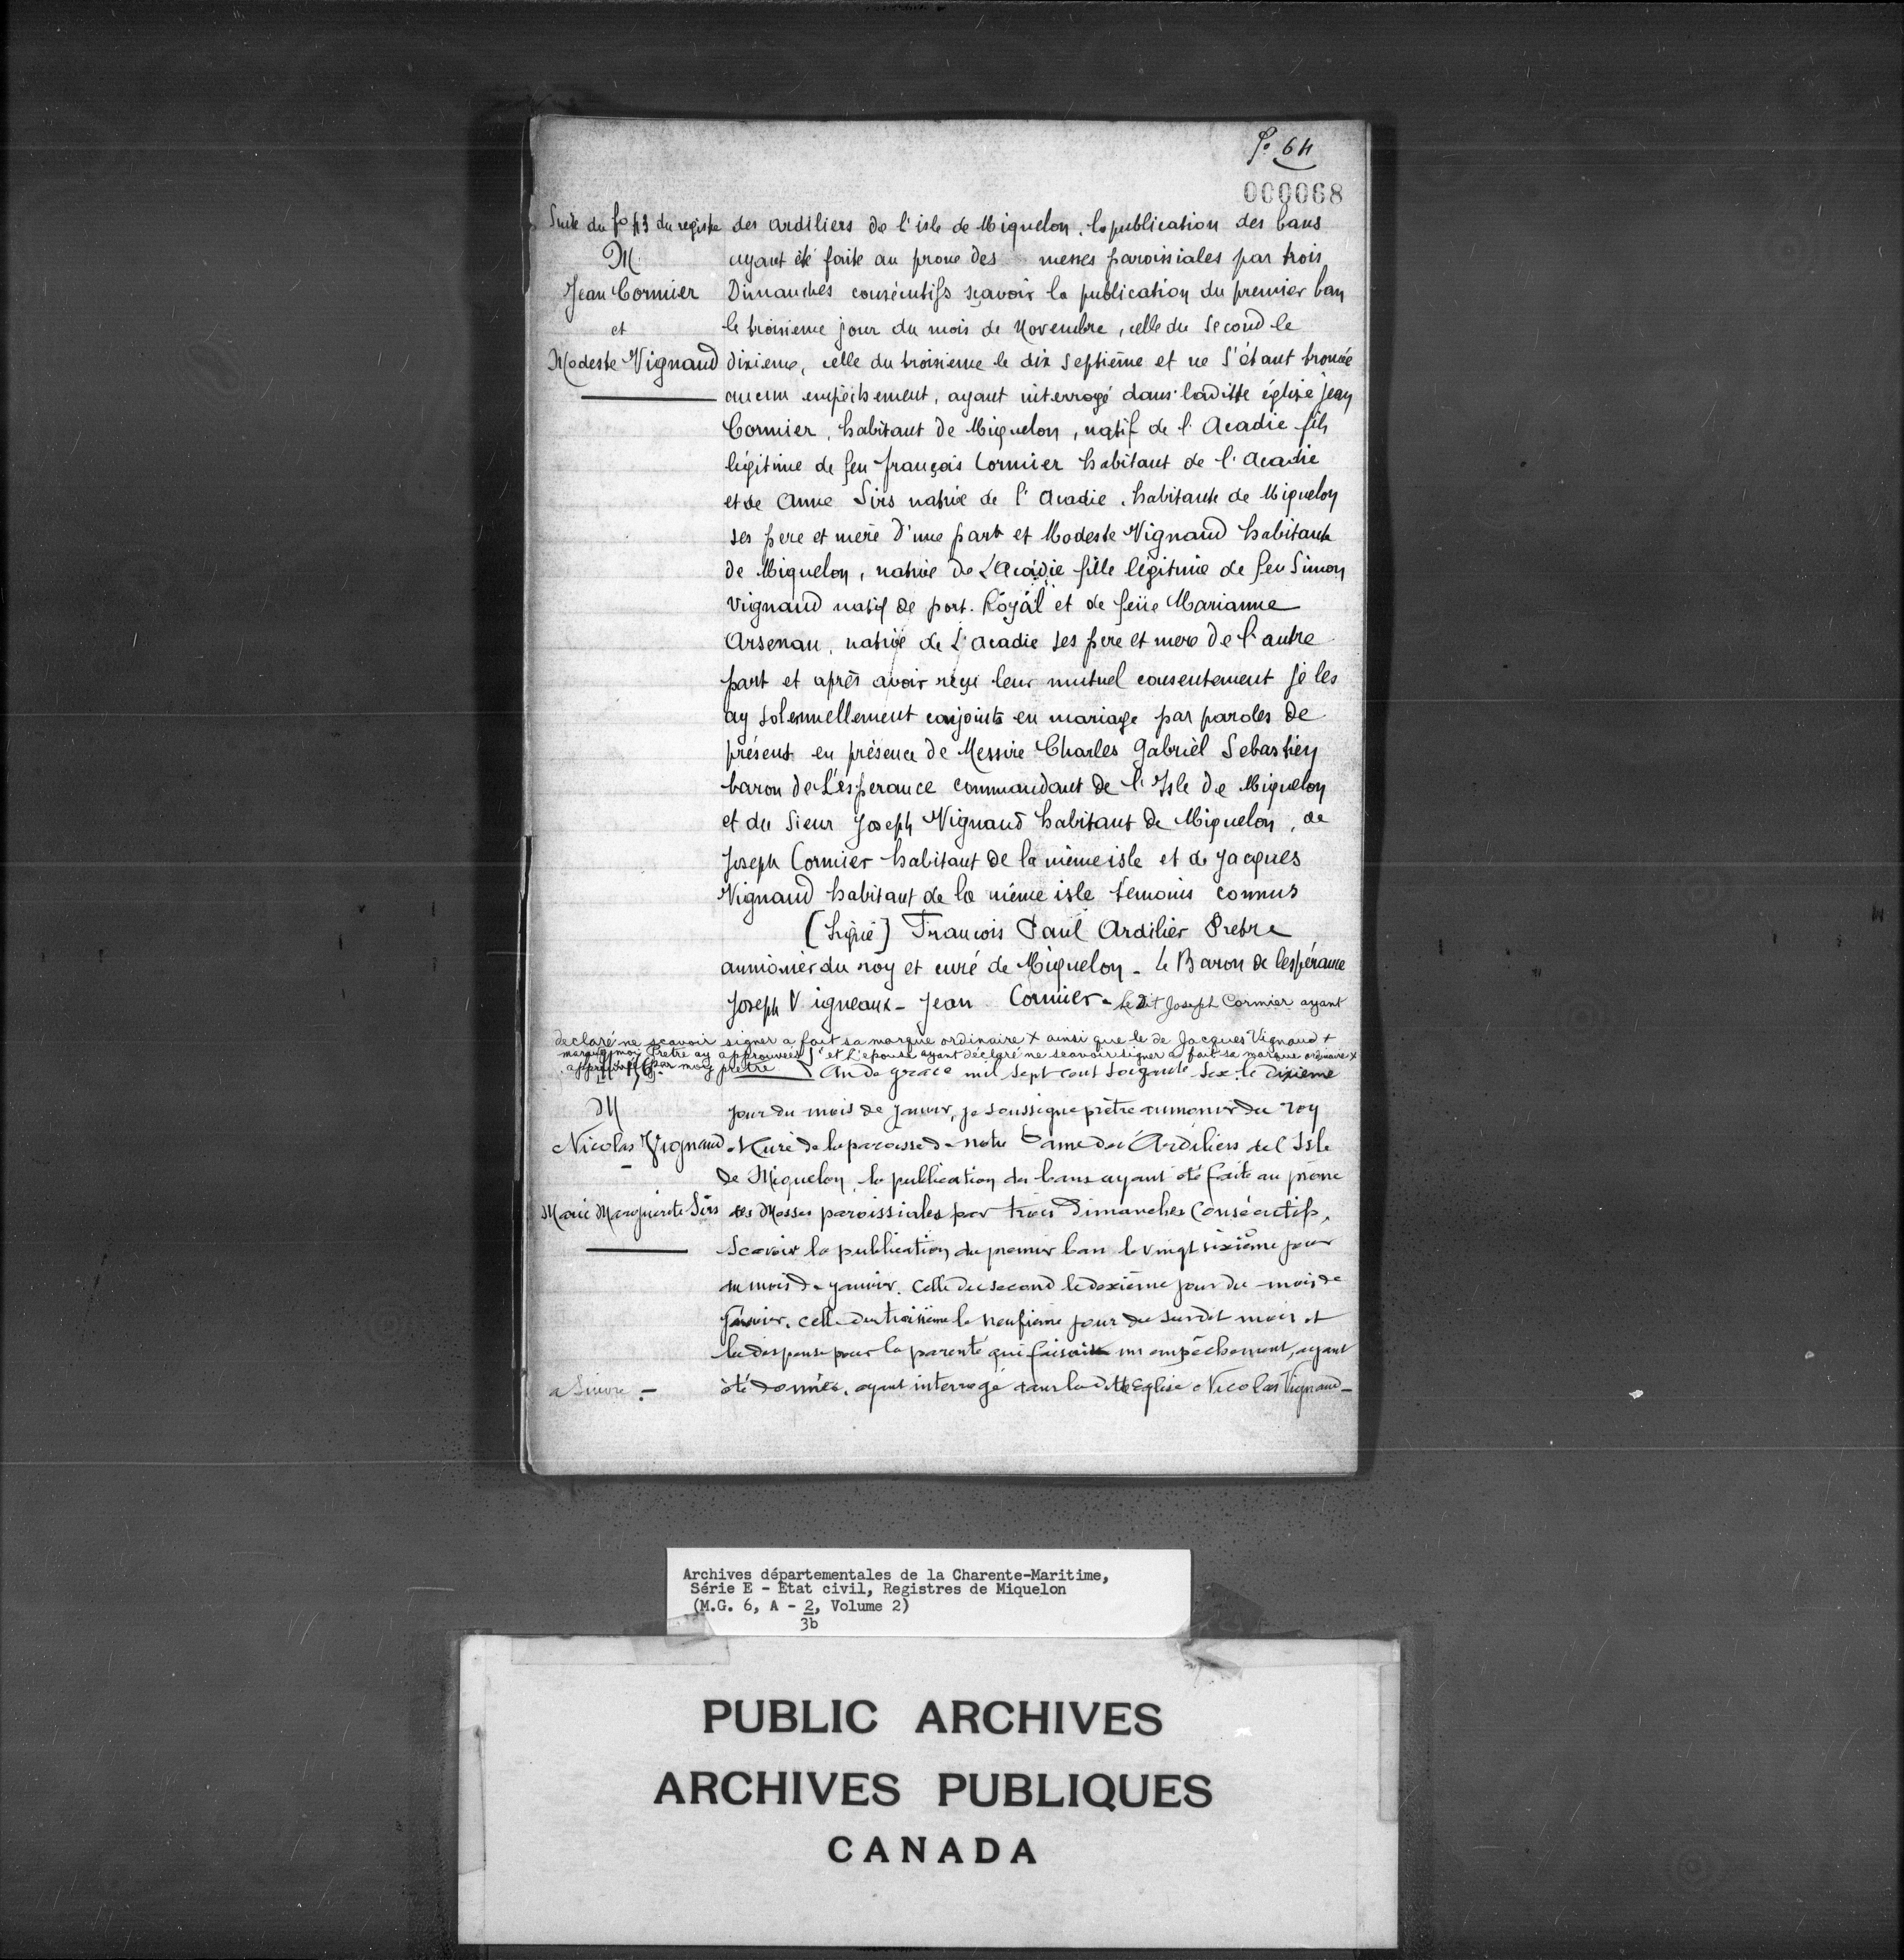 fo 64
000068
Suite du fo 43 du registre des ardiliers de l'isle de Miquelon, la publication des bans
M ayant été faite au prone des messes paroissiales par trois
Jean Cormier Dimanches consécutifs sçavoir la publication du premier ban
et le troisieme jour du mois de Novembre, celle du second le
Modeste Vignaud dixieme, celle du troisieme le dix septième et ne s'étant trouvée
aucun empêchement, ayant interrogé dans laditte église jean
Cormier, habitant de Miquelon, natif de l'Acadie fils
légitime de feu françois Cormier habitant de l'Acadie
et de Anne Sirs native de l'Acadie, habitante de Miquelon
ses pere et mere d'une part et Modeste Vignaud habitante
de Miquelon, native de L'Acadie fille légitime de feu Simon
Vignaud natif de port. Royál et de feüe Marianne
Arsenau, native de L'acadie ses pere et mere de l'autre
part et après avoir reçu leur mutuel consentement je les
ay solemnellement conjoints en mariage par paroles de
présent en présence de Messire Charles Gabriel Sebastien
baron de L'ésperance commandant de l'Isle de Miquelon
et du Sieur Joseph Vignaud habitant de Miquelon, de
Joseph Cormier habitant de la même isle et de Jacques
Vignaud habitant de la même isle temoins connus
(Signé) François Paul Ardilier Prebre
aumônier du roy et curé de Miquelon - le Baron de lespérance
Joseph Vigneaux - Jean Cormier - le dit Joseph Cormier ayant
declaré ne scavoir signer a fait sa marque ordinaire x ainsi que le de Jacques Vignaud +
marque moi Pretre ay approuvées et l'epouse ayant déclaré ne scavoir signer a fait sa marque ordinaire x
par moy prêtre. An de grace mil sept cent soixante six. le dixieme
M jour du mois de Janvier, je soussigné prêtre aumonier du roy
Nicolas Vignaud et Curé de la paroisse de notre Dame des Ardiliers de l'Isle
- de Miquelon, la publication des bans ayant été faite au prône
Marie Marguerite Sirs des Messes paroissiales par trois Dimanches Consécutifs,
Scavoir la publication du premier ban le vingt sixième jour
du mois de janvier. Celle du second le dexième jour du mois de
celle du troisième le neufieme jour du susdit mois et
la dispense pour la parenté qui faisoit un empêchement, ayant
a Suivre - été donnée, ayant interrogé dans la ditte Eglise Nicolas Vignaud -
Archives départementales de la Charente-Maritime,
Série E - Etat civil, Registres de Miquelon
(M.G. 6, A - 2, Volume 2)
3b
PUBLIC ARCHIVES
ARCHIVES PUBLIQUES
CANADA